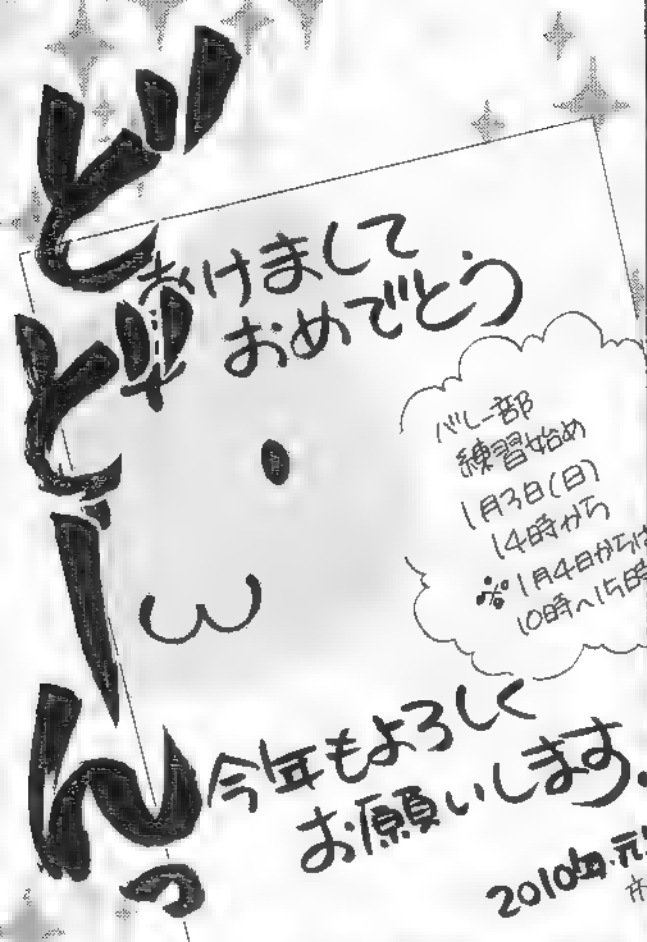 どどーんっ
あけまして
おめでとう
バレー部
練習始め
1月3日(日)
14時から
※1月4日からは
10時~15時
今年もよろしく
お願いします。
2010年.元